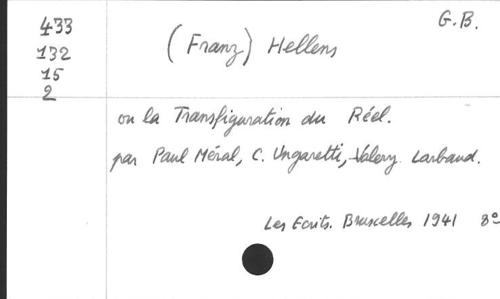 433
132
15
2
G.B.
(Franz) Hellens
ou la Transfiguration du Réel.
par Paul Méral, C. Ungaretti, Valery Larbaud.
Les Ecrits. Bruxelles 1941 8º